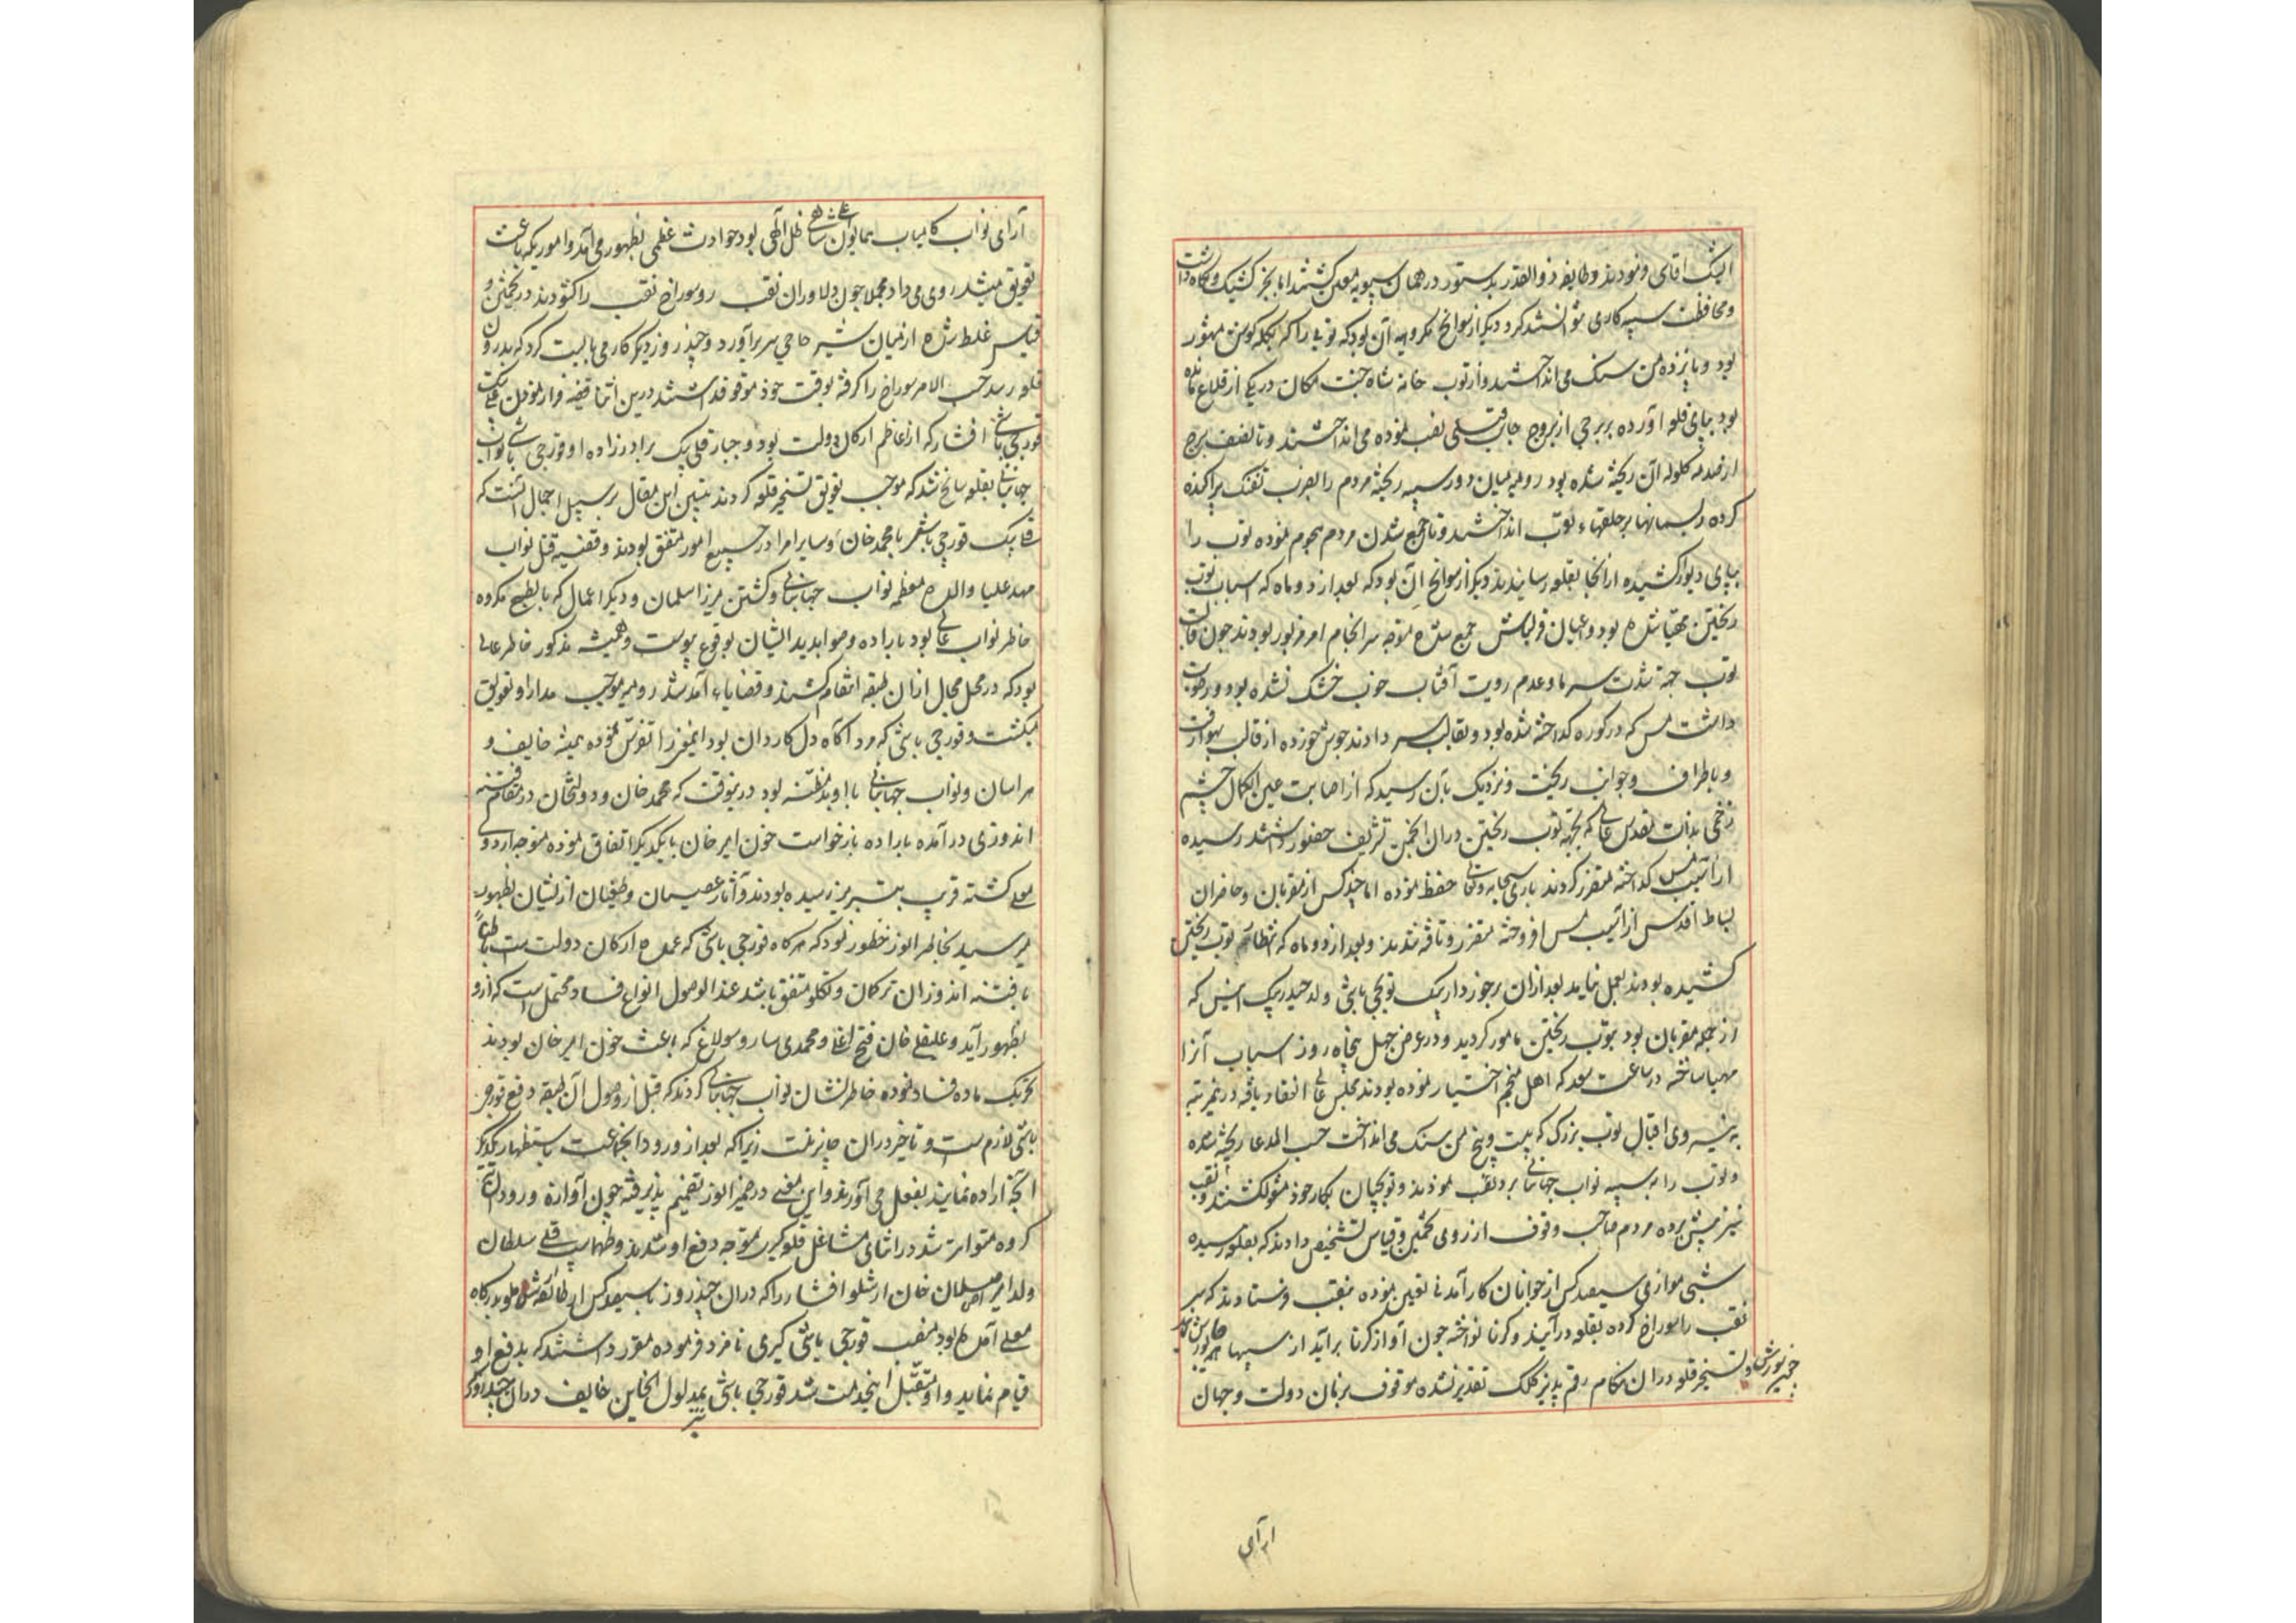 ایشک اقاسی و نمودند و طایفه ذوالقدر بدستور در همان سیبه معین کشتند اما بجز کشیک و نکاه داشت
و محافظت سیبه کاری متوانستند کرد دیکر از سوانح مکروهه آن بود که توپی را که بچکه کوسن مشهور
بود و پانزده من سنک می انداخت و از توپ خانه شاه جنت مکان در یکی از قلاع مانده
بود بپای قلعه آورده بر برجی از بروج جانب نصب نموده می انداختند و تا نصف برج
از صدمه کلوله آن ریخته شده بود رومیه میان دو سیبه ریخته مردم را بضرب تفنک پراکنده
کرده ریسمانها بر حلقهاء توپ انداختند و تا جمع شدن مردم هجوم نموده توپ را
بپای دیوار کشیده از انجا بقلعه رسانیدند دیکر از سوانح آن بود که بعد از دو ماه که اسباب توپ
ریختن مهیا شده بود و اعیان قزلباش جمع شده متوجه سرانجام امر مزبور بودند چون قالب
توپ جهة شدت سرما و عدم رویت آفتاب خوب خشک نشده بود و رطوبت
داشت مس که در کوره کداخته شده بود و بقالب سر دادند جوش خورده از قالب بهوا رفت
و باطراف و جوانب ریخت و نزدیک بآن رسید که از اصابت عین الکمال چشم
زخمی بذات مقدس عالی که بجهة توپ ریختن دران انجمن تشریف حضور داشتند رسیده
از آسیب مس کداخته متضرر کردند باری سبحانه و تعالی حفظ نموده اما چند کس از مقربان و حاضران
بساط اقدس از آسیب مس افروخته متضرر و تافته شدند و بعد از دو ماه که انتظام توپ ریختن
کشیده بودند بعمل نیامد بعد ازان برخوردار بیک توپچی باشی ولد حیدر بیک انیس که
از جمله مقربان بود بتوپ ریختن مامور کردید و در عرض چهل پنجاه روز اسباب آنرا
مهیا ساخته در ساعت سعد که اهل تنجیم اختیار نموده بودند مجلس عالی انعقاد یافته درین مرتبه
به نیروی اقبال توپ بزرک که بیست و پنج من سنک می انداخت حسب المدعا ریخته شده
و توپ را به سیبه نواب جهانبانی برده نصب نمودند و توپچیان بکار خود مشغول کشتند و نقب
نیز پیش برده مردم صاحب وقوف از روی تخمین و قیاس تشخیص دادند که بقلعه رسیده
شبی موازی سیصد کس از جوانان کار آمدنی تعین نموده بنقب فرستادند که سر
نقب را سوراخ کرده بقلعه درآیند و کرنا نواخته چون آواز کرنا برآید از سیبها
و تسخیر قلعه دران هنکام رقم پذیر کلک تقدیر نشده موقوف بزمان دولت و جهان
خبر یورش
ارآی
آرای نواب کامیاب همایون شاهی ظل الهی بود حوادث عظمی بظهور می آمد و اموریکه باعث
تعویق میشد روی می داد مجملا چون دلاوران نقب رو سوراخ نقب را کشودند در تخمین و
قیاس غلط شده از میان شیر حاجی سر برآورد و چند روز دیکر کار می بایست کرد که بدرون
قلعه رسد حسب الامر سوراخ را کرفته بوقت خود موقوف داشتند درین اثنا قضیه فرار نمودن قلی بیک
قورچی باشی افشار که از اعاظم ارکان دولت بود و جبار قلی بیک برادر زاده او قورچی باشی نواب
جهانبانی بقلعه سانح شد که موجب تعویق تسخیر قلعه کردید تبیین این مقال بر سبیل اجمال آنست که
قلی بیک قورچی باشی با محمد خان و سایر امرا در جمیع امور متفق بودند و قضیه قتل نواب
مهد علیا والده معظمه نواب جهانبانی و کشتن میرزا سلمان و دیکر اعمال که بالطبع مکروه
خاطر نواب عالی بود باراده و صوابدید ایشان بوقوع پیوست و همیشه مذکور خاطر عالی
بود که در محل مجال ازان طبقه انتقام کشند و قضایاء آمد شد رومیه موجب مدارا و تعویق
میکشت و قورچی باشی که مرد آکاه دل کاردان بود اینمعنی را تفرس نموده همیشه خایف و
هراسان و نواب جهانبانی با او بدمظنه بود درینوقت که محمد خان و ولیخان در مقام فتنه
اندوزی درآمده باراده بازخواست خون امیر خان با یکدیکر اتفاق نموده متوجه اردوی
معلی کشته قریب بتبریز رسیده بودند و آثار عصیان و طغیان از یشان بظهور
میرسید بخاطر انور خطور نمود که هرکاه قورچی باشی که عمده ارکان دولت ست باطناً
با فتنه اندوزان ترکمان و تکلو متفق باشد عند الوصول انواع فساد محتمل است که ازو
بظهور آید و علیقلی خان فتح اغلی و محمدی ساروسولاغ که باعث خون امیر خان بودند
تحریک ماده فساد نموده خاطر نشان نواب جهانبانی کردند که قبل از وصول آن طبقه دفع قورچی
باشی لازم ست و تاخیر دران جایز نیست زیرا که بعد از ورود انجماعت باستظهار یکدیکر
آنچه اراده نمایند بفعل می آورند و این معنی در ضمیر انور تصمیم پذیرفته چون آوازه ورود آن
کروه متواتر شد در اثنای مشاغل قلعه کیری متوجه دفع او شدند و طهماسب قلی سلطان
ولد امیر اصلان خان ارشلو افشار را که دران چند روز با سیصد کس از طائفه ارشلو بدرکاه
معلی آمده بود بمنصب قورچی باشی کری نامزد فرموده مقرر داشتند که بدفع او
قیام نماید و او متقبل اینخدمت شد قورچی باشی بمدلول الخاین خایف دران چند روز